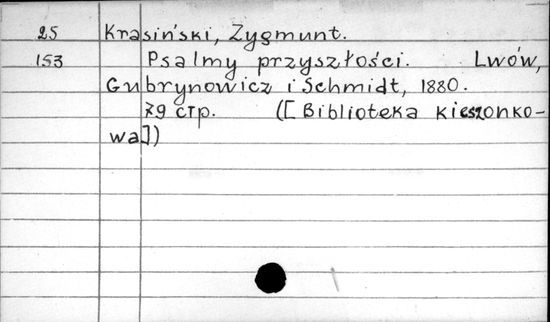 25 Krasiński, Zygmunt.
153 Psalmy przyszłości. Lwów,
Gubrynowicz i Schmidt, 1880.
79 стр. ([Biblioteka kieszonko-
wa])